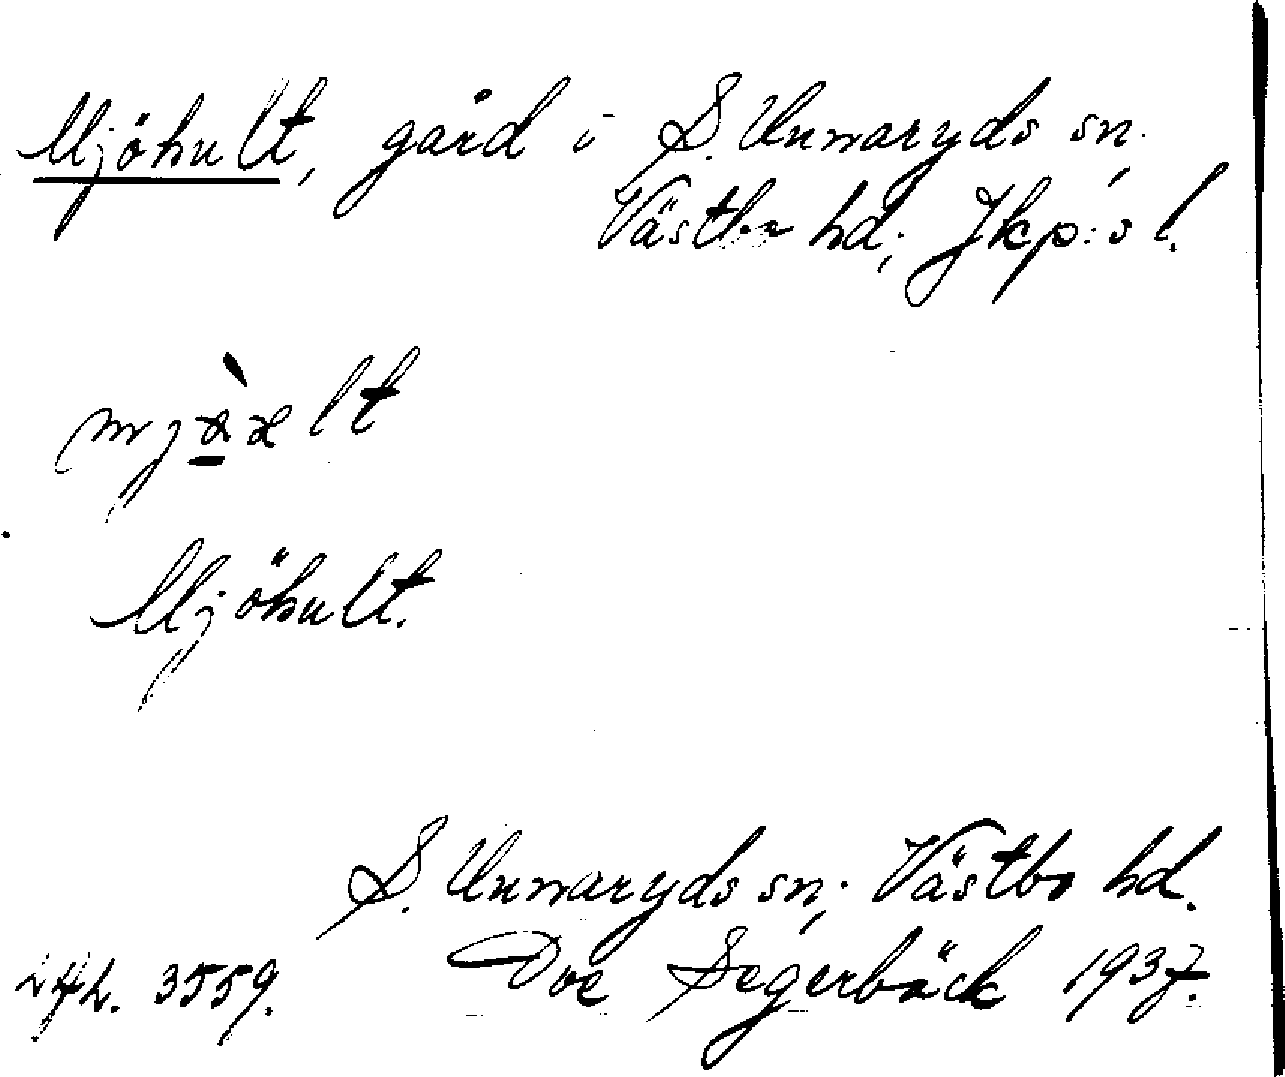 Mjöhult, gård i S. Unnaryds sn,
Västbo hd, Jkp:s l.
Mjöhult.
S. Unnaryds sn, Västbo hd.
3559. Segerbäck 1937.